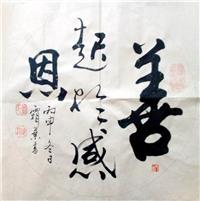 善
起於感
恩
丙申冬日
霜葉書